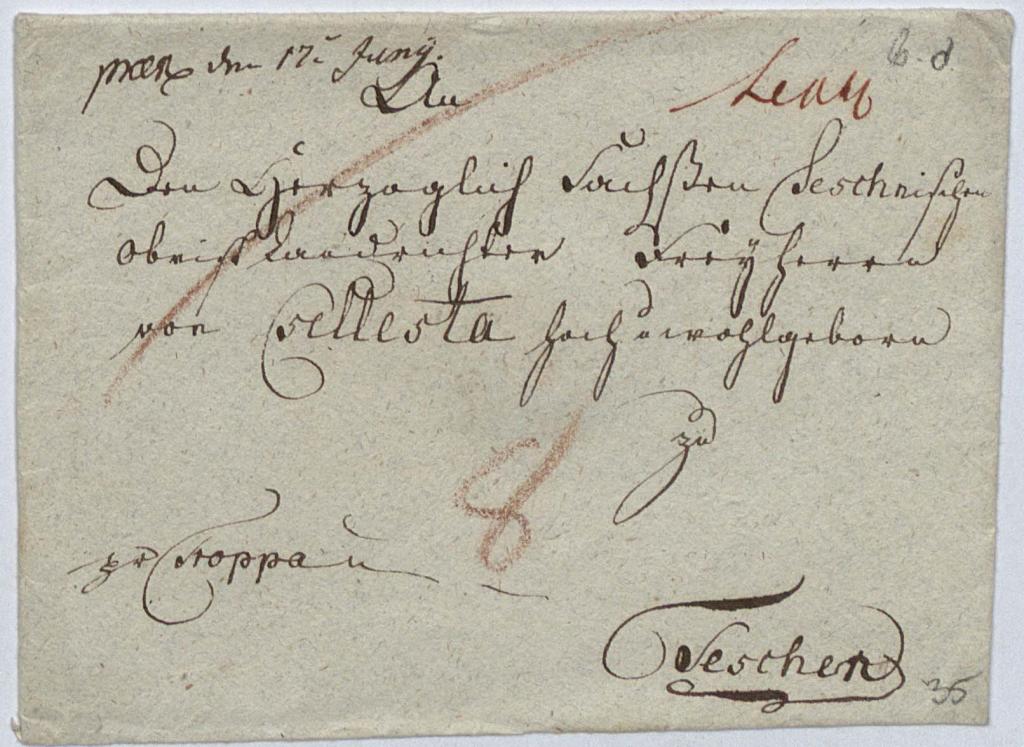 præs den 17. Juny.
An
Den Herzoglich Sachßen Teschnischen
Obrist Landrichter Freyherrn
von Cselesta hoch u wohlgeborn
zu
8
pr Troppau
Teschen
35